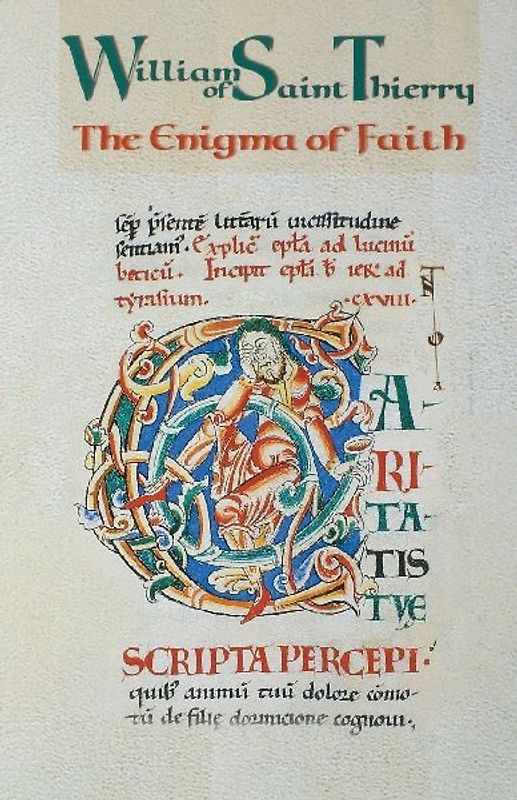 William of Saint Thierry
The Enigma of Faith
sēp p̄sentē litt̄arū uicissitudine
sentiam᾽. Explic̄ epl̄a ad lucinū
beticū. Incipit epl̄a b̄ ier̄ ad
tyrasium. ·cxviii·
CA-
RI-
TA-
TIS
TVE
SCRIPTA PERCEPI·
quib᾽ animū tuū dolore cōmo-
tū de filię dormicione cognoui·,